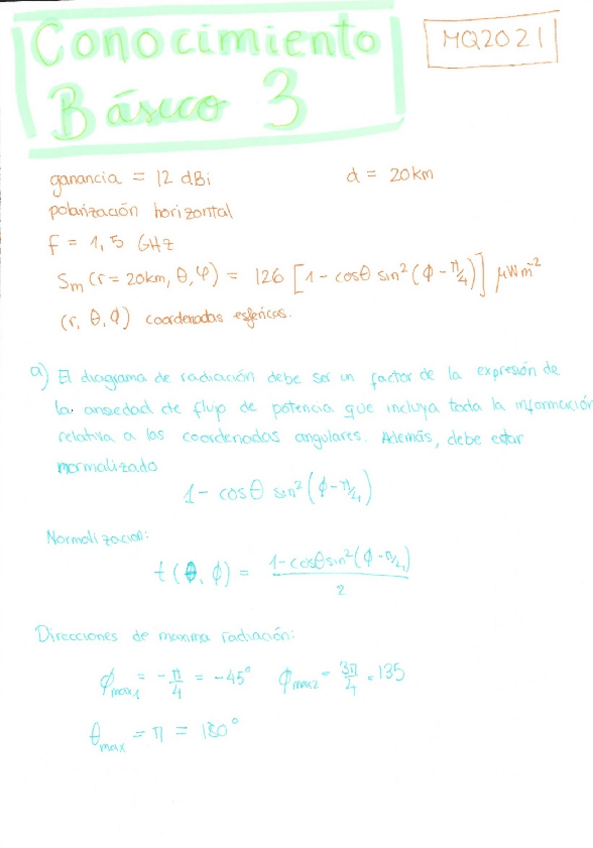 Conocimiento
Básico 3
MQ2021
ganancia = 12 dBi d = 20km
polarización horizontal
f = 1,5 GHz
Sm (r = 20km, θ, φ) = 126 [1 - cosθ sin²(ϕ - π/4)] μWm⁻²
(r, θ, ϕ) coordenadas esféricas.
a) El diagrama de radiación debe ser un factor de la expresión de
la ansiedad de flujo de potencia que incluya toda la información
relativa a las coordenadas angulares. Además, debe estar
normalizado
1 - cosθ sin²(ϕ - π/4)
Normalización:
t(θ, ϕ) = 1 - cosθ sin²(ϕ - π/4) / 2
Direcciones de maxima radiación:
ϕmax1 = -π/4 = -45° ϕmax2 = 3π/4 = 135
θmax = π = 180°